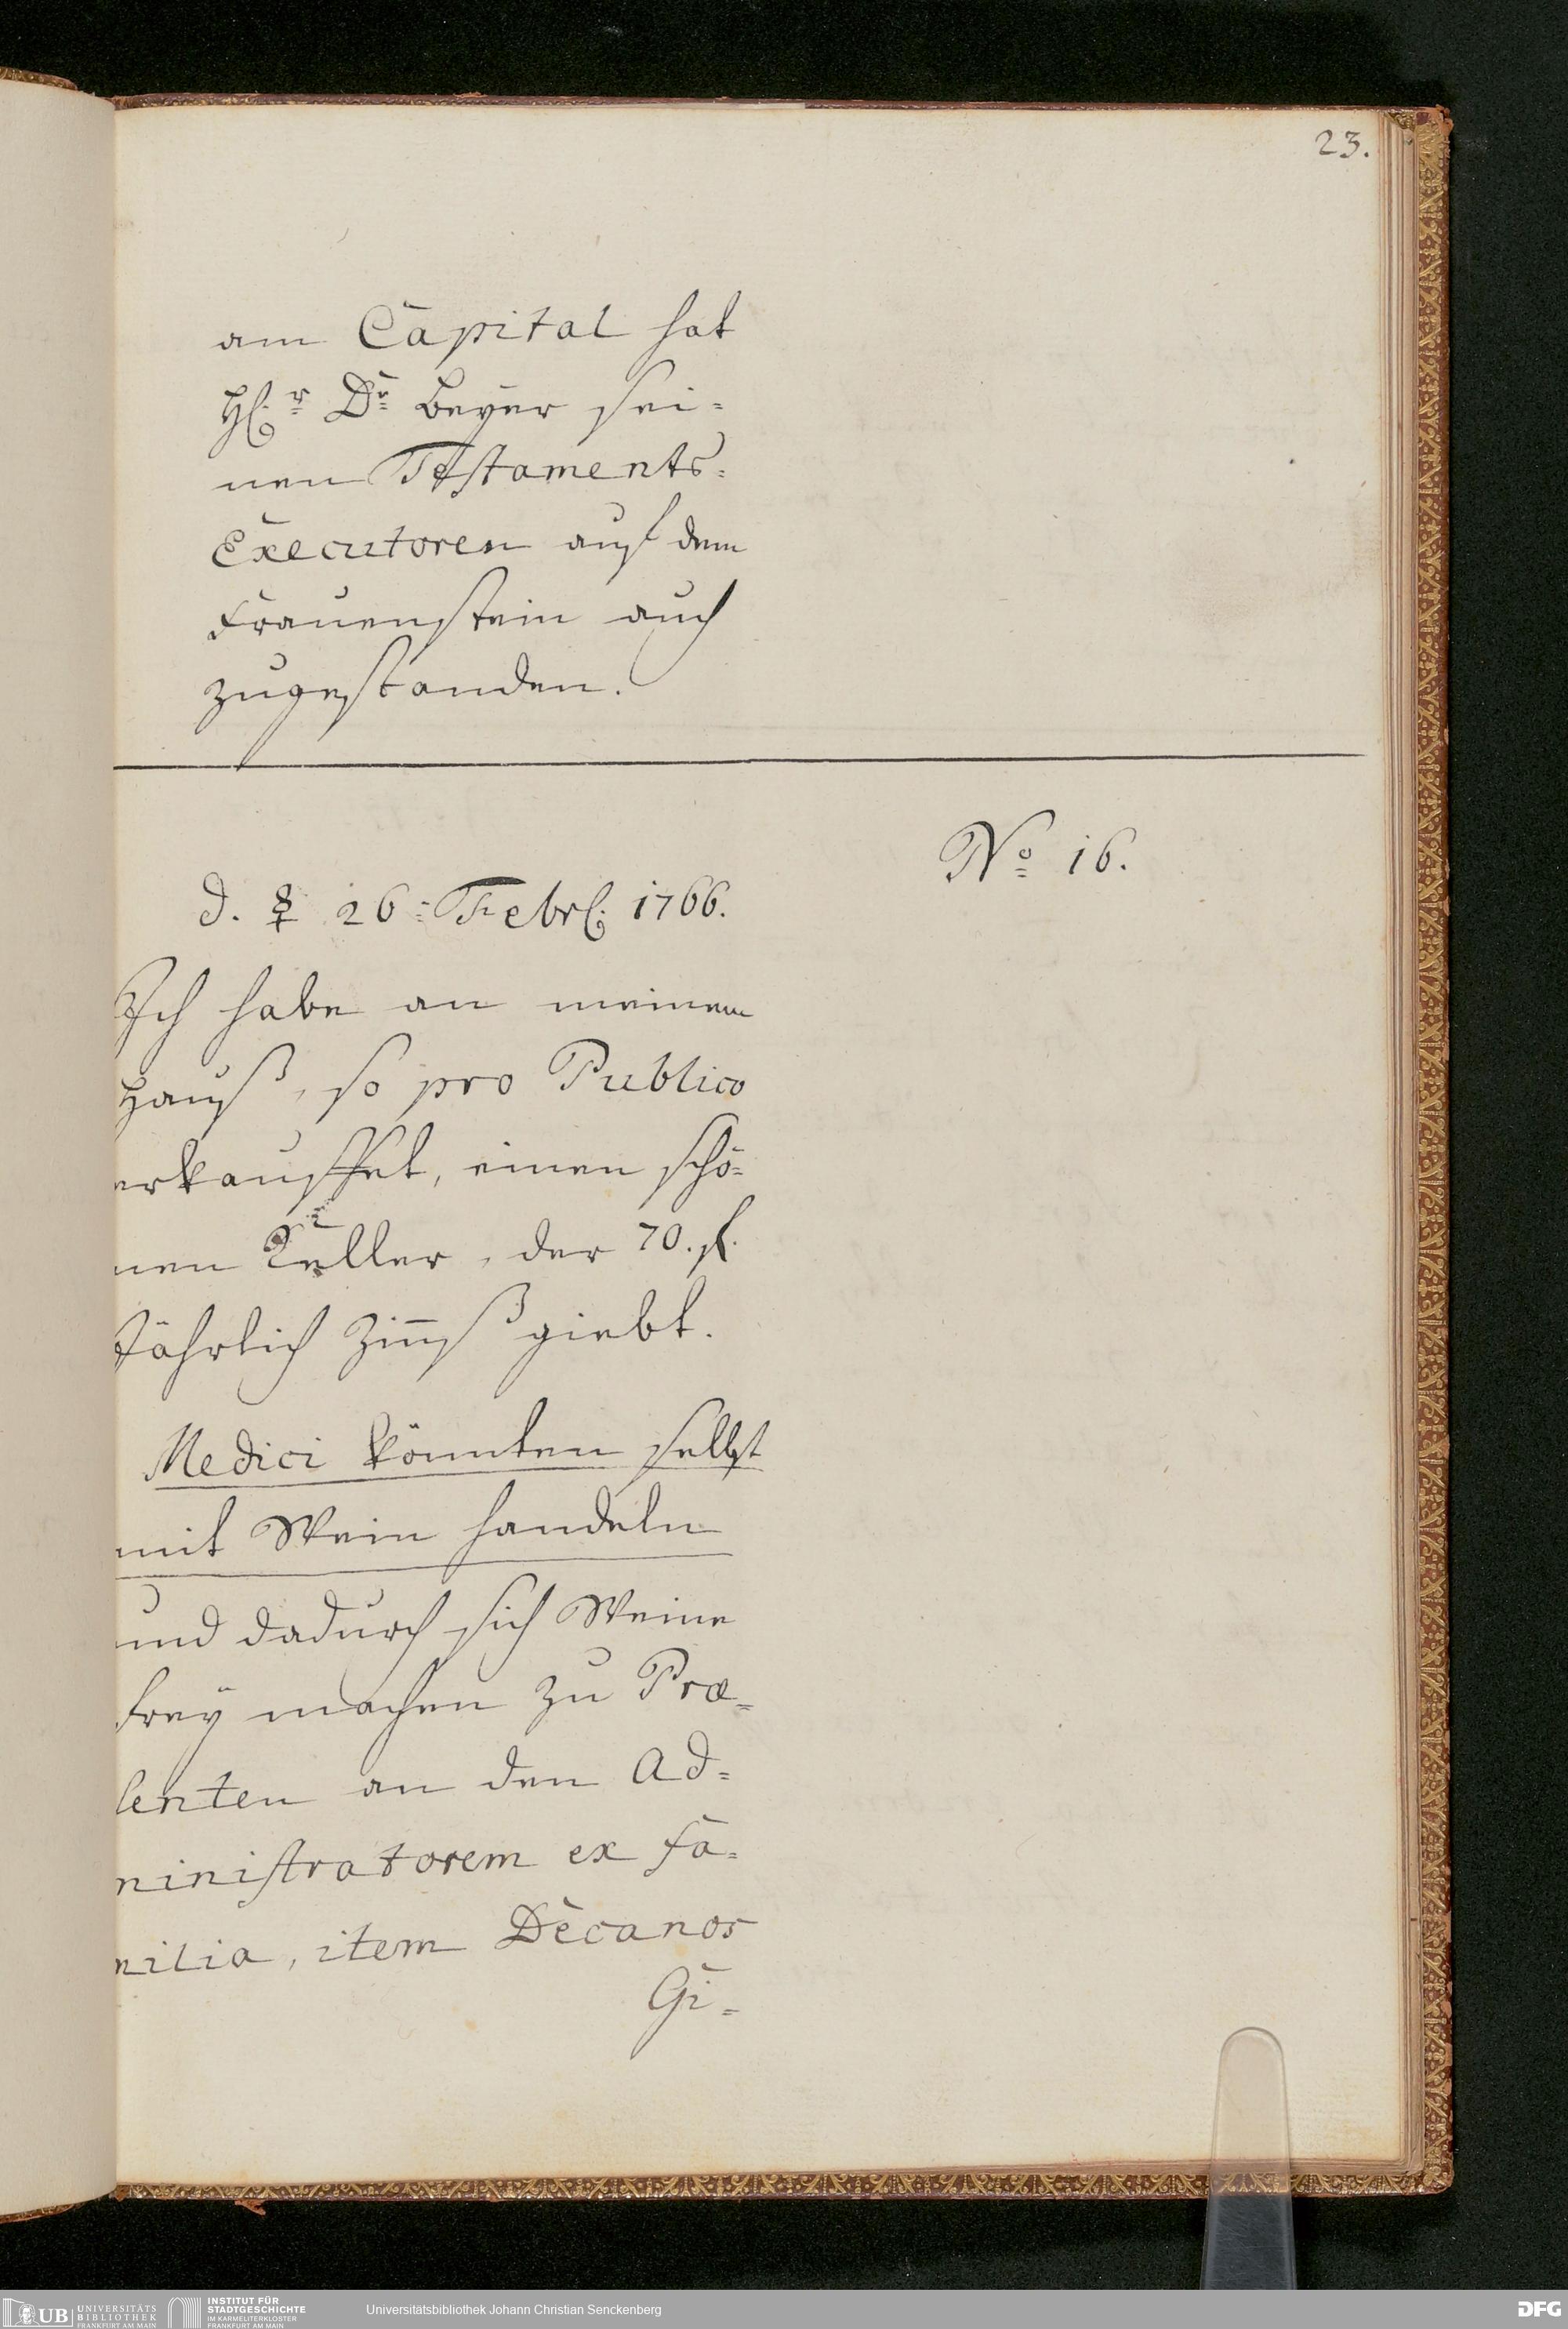 23.
am Capital hat
H. r Dr Beyer sei=
nen Testaments=
Executoren auf dem
Frauenstein auch
zugestanden.
No 16.
d. ☿ 26: Febr. 1766.
Ich habe an meinem
Hauß, so pro Publico
erkauffet, einen schö=
nen Keller, der 70. fl.
Jährlich Zinß giebt.
Medici könnten selbst
mit Wein handeln
und dadurch sich Weine
frey machen zu Præ=
senten an den Ad=
ministratorem ex fa=
milia, item Decanos
Gi=
UB UNIVERSITÄTS
BIBLIOTHEK
FRANKFURT AM MAIN
INSTITUT FÜR
STADTGESCHICHTE
IM KARMELITERKLOSTER
FRANKFURT AM MAIN
Universitätsbibliothek Johann Christian Senckenberg
DFG